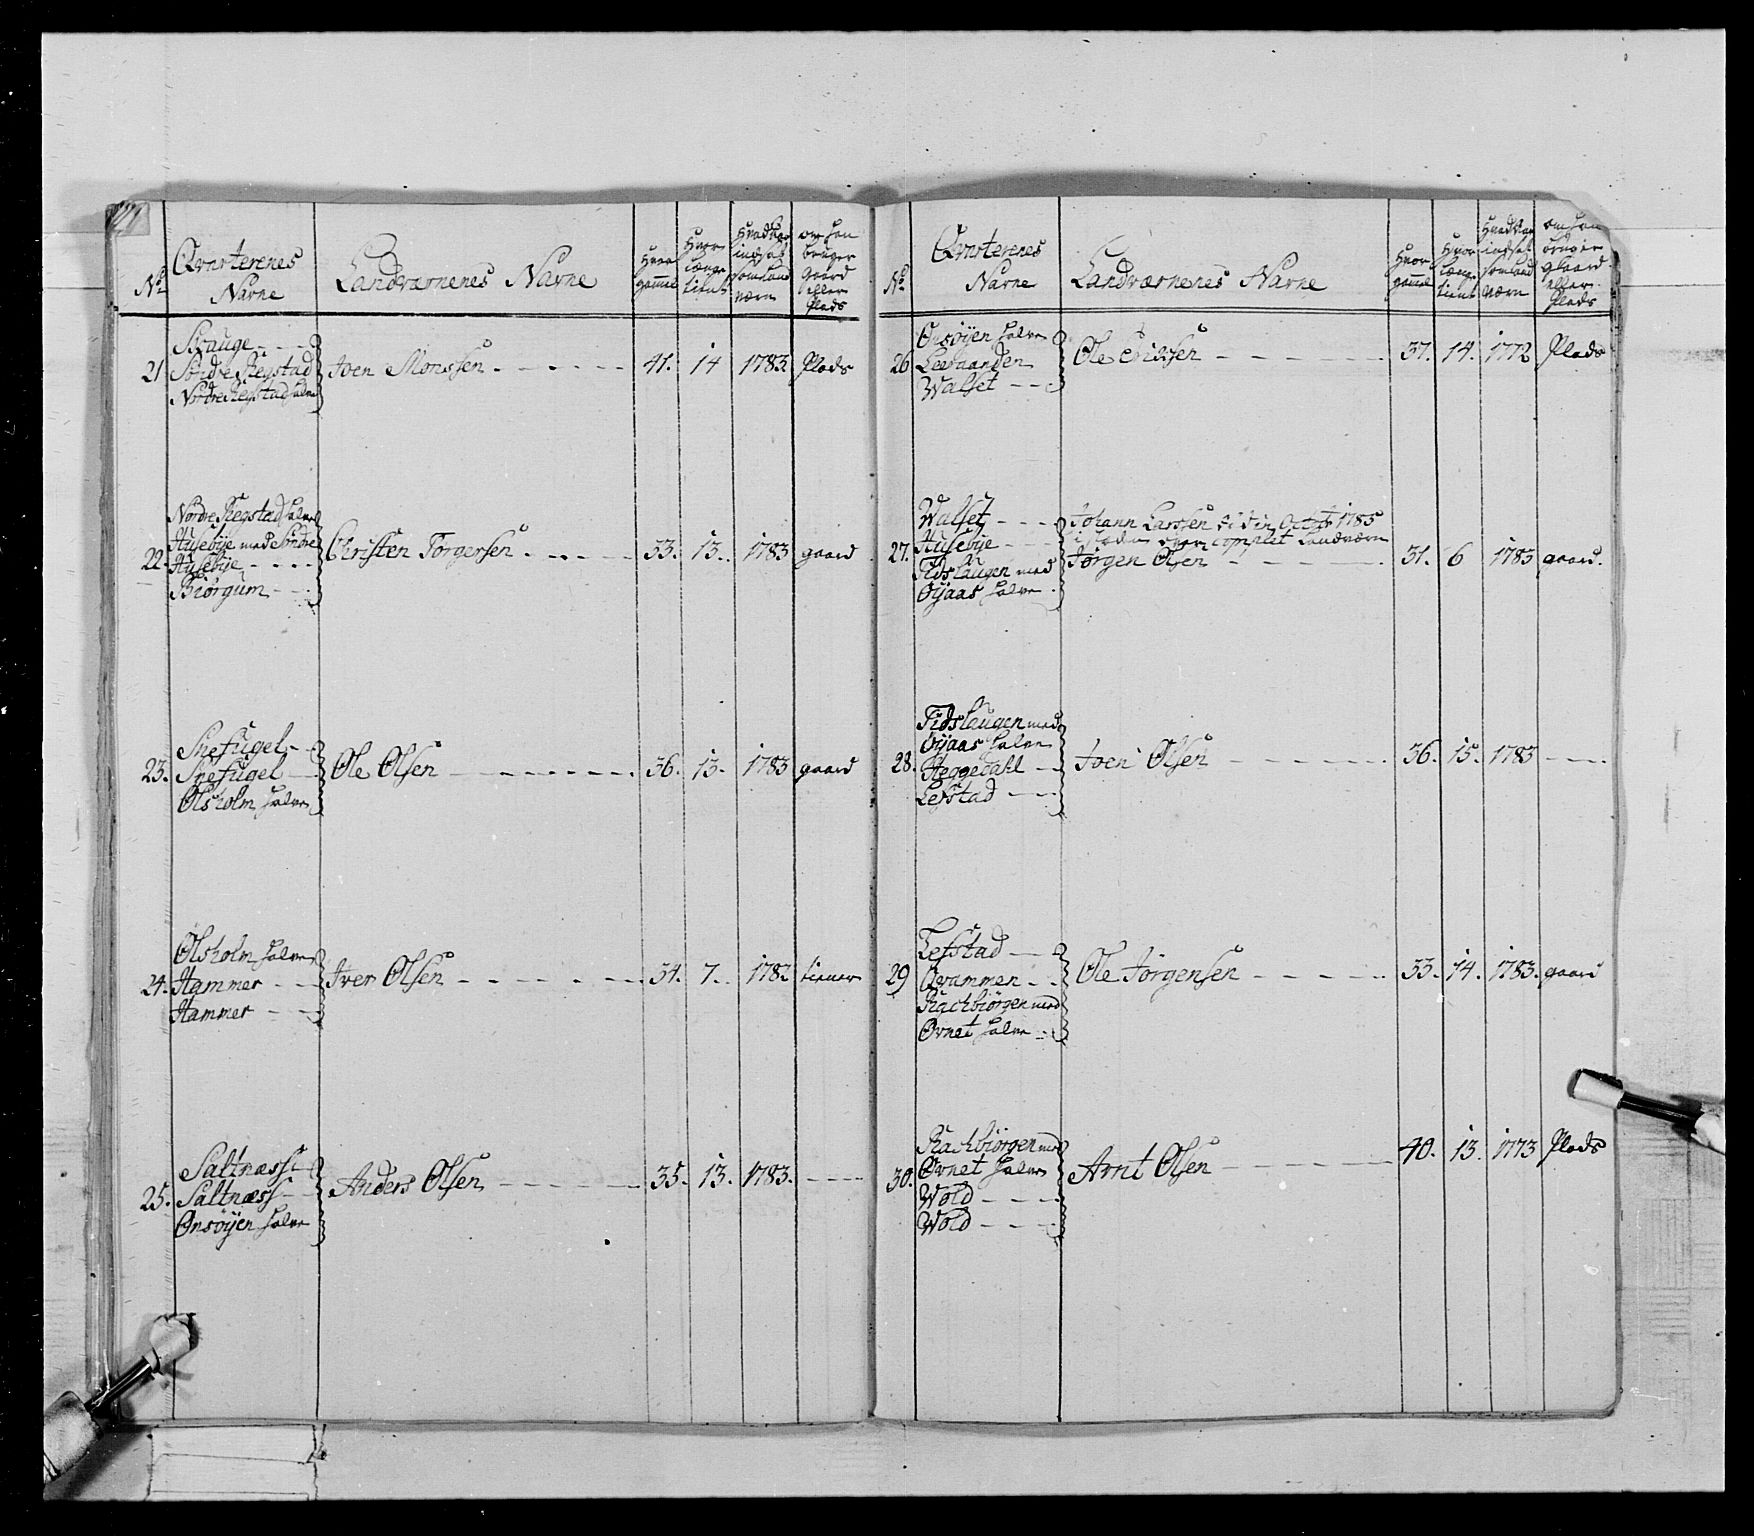 No
Qvarterenes Navne
Landværnenes Navne
Hvor gammel
Hvor længe tient
Hvad Aar indsat som Land værn
om han bruger gaard eller Plads
21
Skauge
Søndre Regstad
Nordre Regstad halve
Joen Monssen 41. 14 1783 Plads
22.
Nordre Regstad halve
Husebÿe med Søndre
Husebÿe
Biørgum
Christen Torgersen 33. 13. 1783 gaard
23.
Snefugel
Snefugel
Ølsholm halve
Ole Olsen 36. 13. 1783 gaard
24.
Ølsholm halve
Hammer
Hammer
Iver Olsen 31. 7. 1782 tiener
25.
Saltnæss
Saltnæss
Onsøÿen halve
Anders Olsen 35. 13. 1783.
No
Qvarterenes Navne
Landværnenes Navne
Hvor gammel
Hvor længe tient
Hvad Aar indsat som Land værn
om han bruger gaard eller Plads
26
Onsøÿen halve
Leeraanden
Walset
Ole 37. 14. 1772 Plads
27.
Walset
Husebÿe
Fidslaugen med
Øÿaas halve
Johann Larssen 1785
complet Landværn
Jørgen Olsen 31. 6 1783 gaard.
28.
Fidslaugen med
Øÿaas halve
Heggedahl
Lefstad
Joen Olsen 36. 15. 1783
29
Lefstad
Qvammen
Rachbiørgen med
Øvnet halve
Ole Jørgensen 33. 14. 1783. gaard
30.
Rachbiørgen med
Øvnet halve
Wold
Wold
Arnt Olsen 40. 13. 1773 Plads